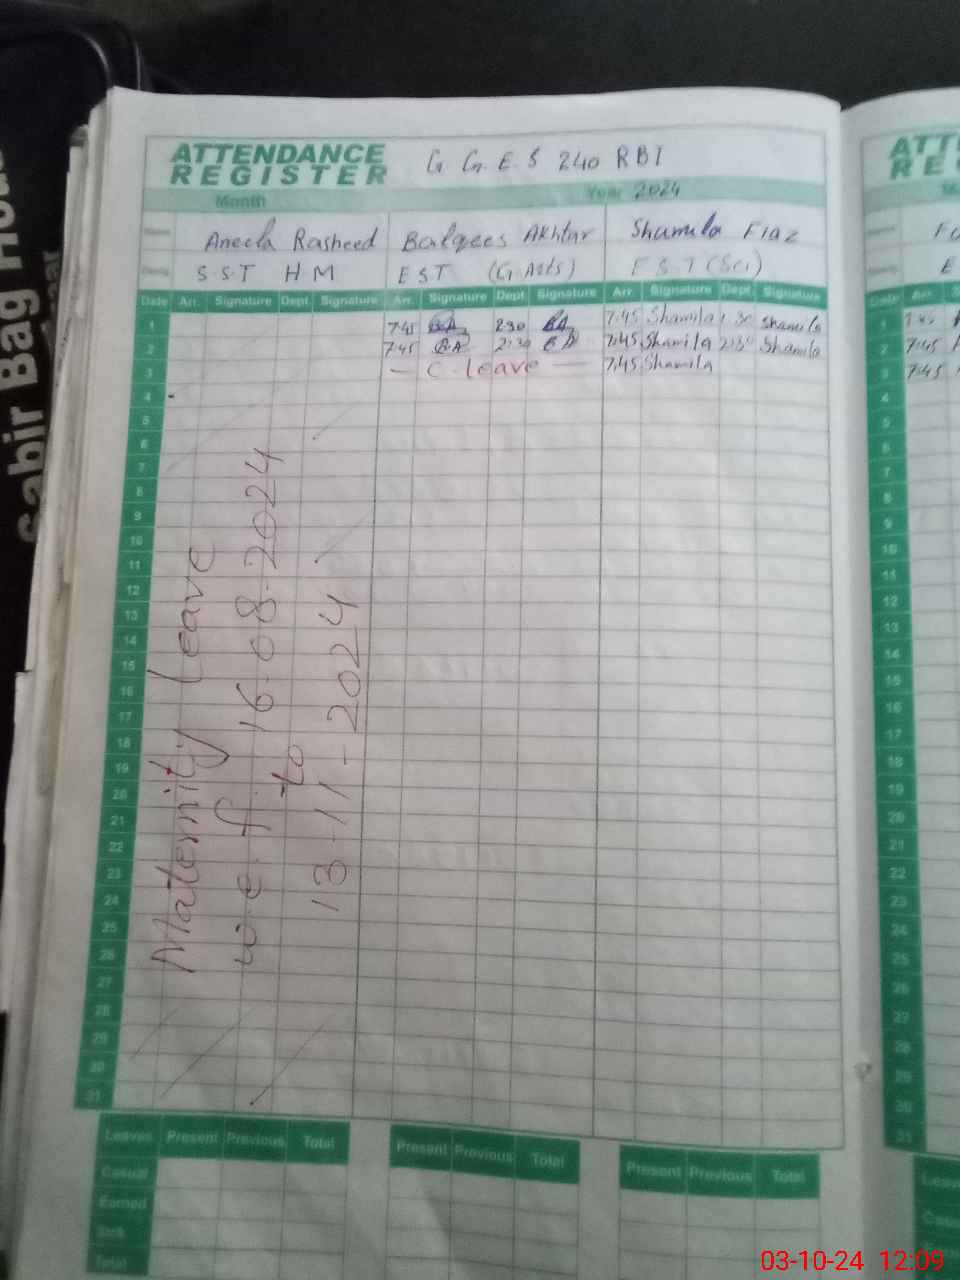 ATTENDANCE REGISTER G. G. E. S 240 RBI
Month Year 2024
Name Aneela Rasheed Balqees Akhtar Shamila Fiaz
S.S.T H M EST (G. Arts) E S T (Sci)
Date Arr. Signature Dept. Signature Arr. Signature Dept. Signature Arr. Signature Dept. Signature
1 7:45 BA 2:30 BA 7:45 Shamila 1:30 Shamila
2 7:45 BA 2:30 BA 7:45 Shamila 2:30 Shamila
3 — C. leave — 7:45 Shamila
4
5
6
7
8
9
10
11
12
13
14
15
16
17
18
19
20
21
22
23
24
25
26
27
28
29
30
31
Maternity Leave
w.e.f. 16-08-2024
to
13-11-2024
Leaves Present Previous Total Present Previous Total Present Previous Total
Casual
Earned
Sick
Total
Sabir Bag House
7:45
7:45
03-10-24 12:09